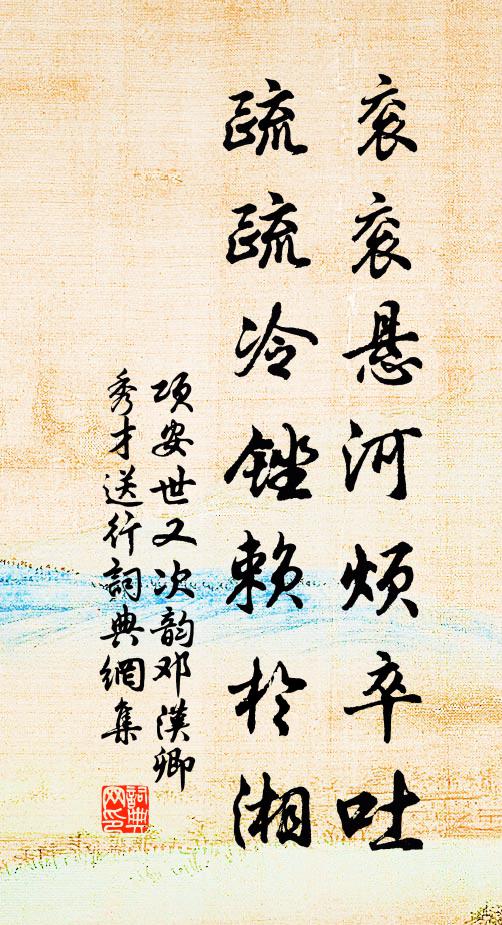 衮衮悬河烦卒吐
疏疏冷锉赖於湘
项安世又次韵邓汉卿
秀才送行词典網集
詞典网印